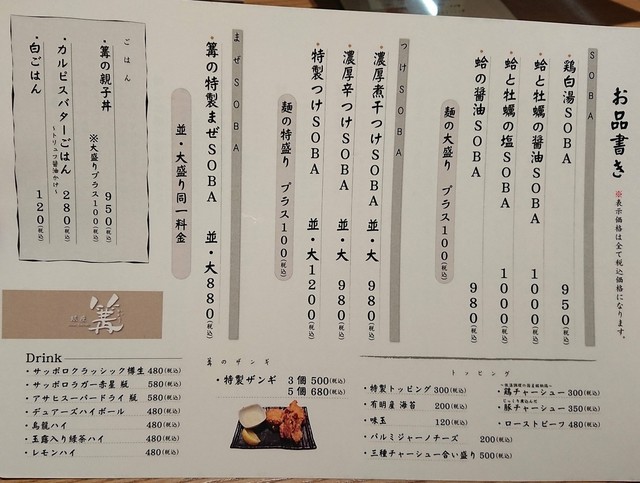 お品書き
※表示価格は全て税込価格になります。
SOBA
・鶏白湯SOBA 950(税込)
・蛤と牡蠣の醤油SOBA 1000(税込)
・蛤と牡蠣の塩SOBA 1000(税込)
・蛤の醤油SOBA 980(税込)
麺の大盛り プラス100(税込)
つけSOBA
・濃厚煮干つけSOBA 並・大 980(税込)
・濃厚辛つけSOBA 並・大 980(税込)
・特製つけSOBA 並・大 1200(税込)
麺の特盛り プラス100(税込)
まぜSOBA
・篝の特製まぜSOBA 並・大 880(税込)
並・大盛り同一料金
ごはん
・篝の親子丼 950(税込)
※大盛りプラス100(税込)
・カルピスバターごはん 280(税込)
〜トリュフ醤油かけ〜
・白ごはん 120(税込)
篝
Drink
・サッポロクラッシック樽生 480(税込)
・サッポロラガー赤星 瓶 580(税込)
・アサヒスーパードライ 瓶 580(税込)
・デュアーズハイボール 480(税込)
・烏龍ハイ 480(税込)
・玉露入り緑茶ハイ 480(税込)
・レモンハイ 480(税込)
篝のザンギ
・特製ザンギ 3個 500(税込)
5個 680(税込)
トッピング
・特製トッピング 300(税込)
・有明産 海苔 200(税込)
・味玉 120(税込)
・パルミジャーノチーズ 200(税込)
・三種チャーシュー合い盛り 500(税込)
・鶏チャーシュー 300(税込)
じっくり煮込んだ
・豚チャーシュー 350(税込)
・ローストビーフ 480(税込)